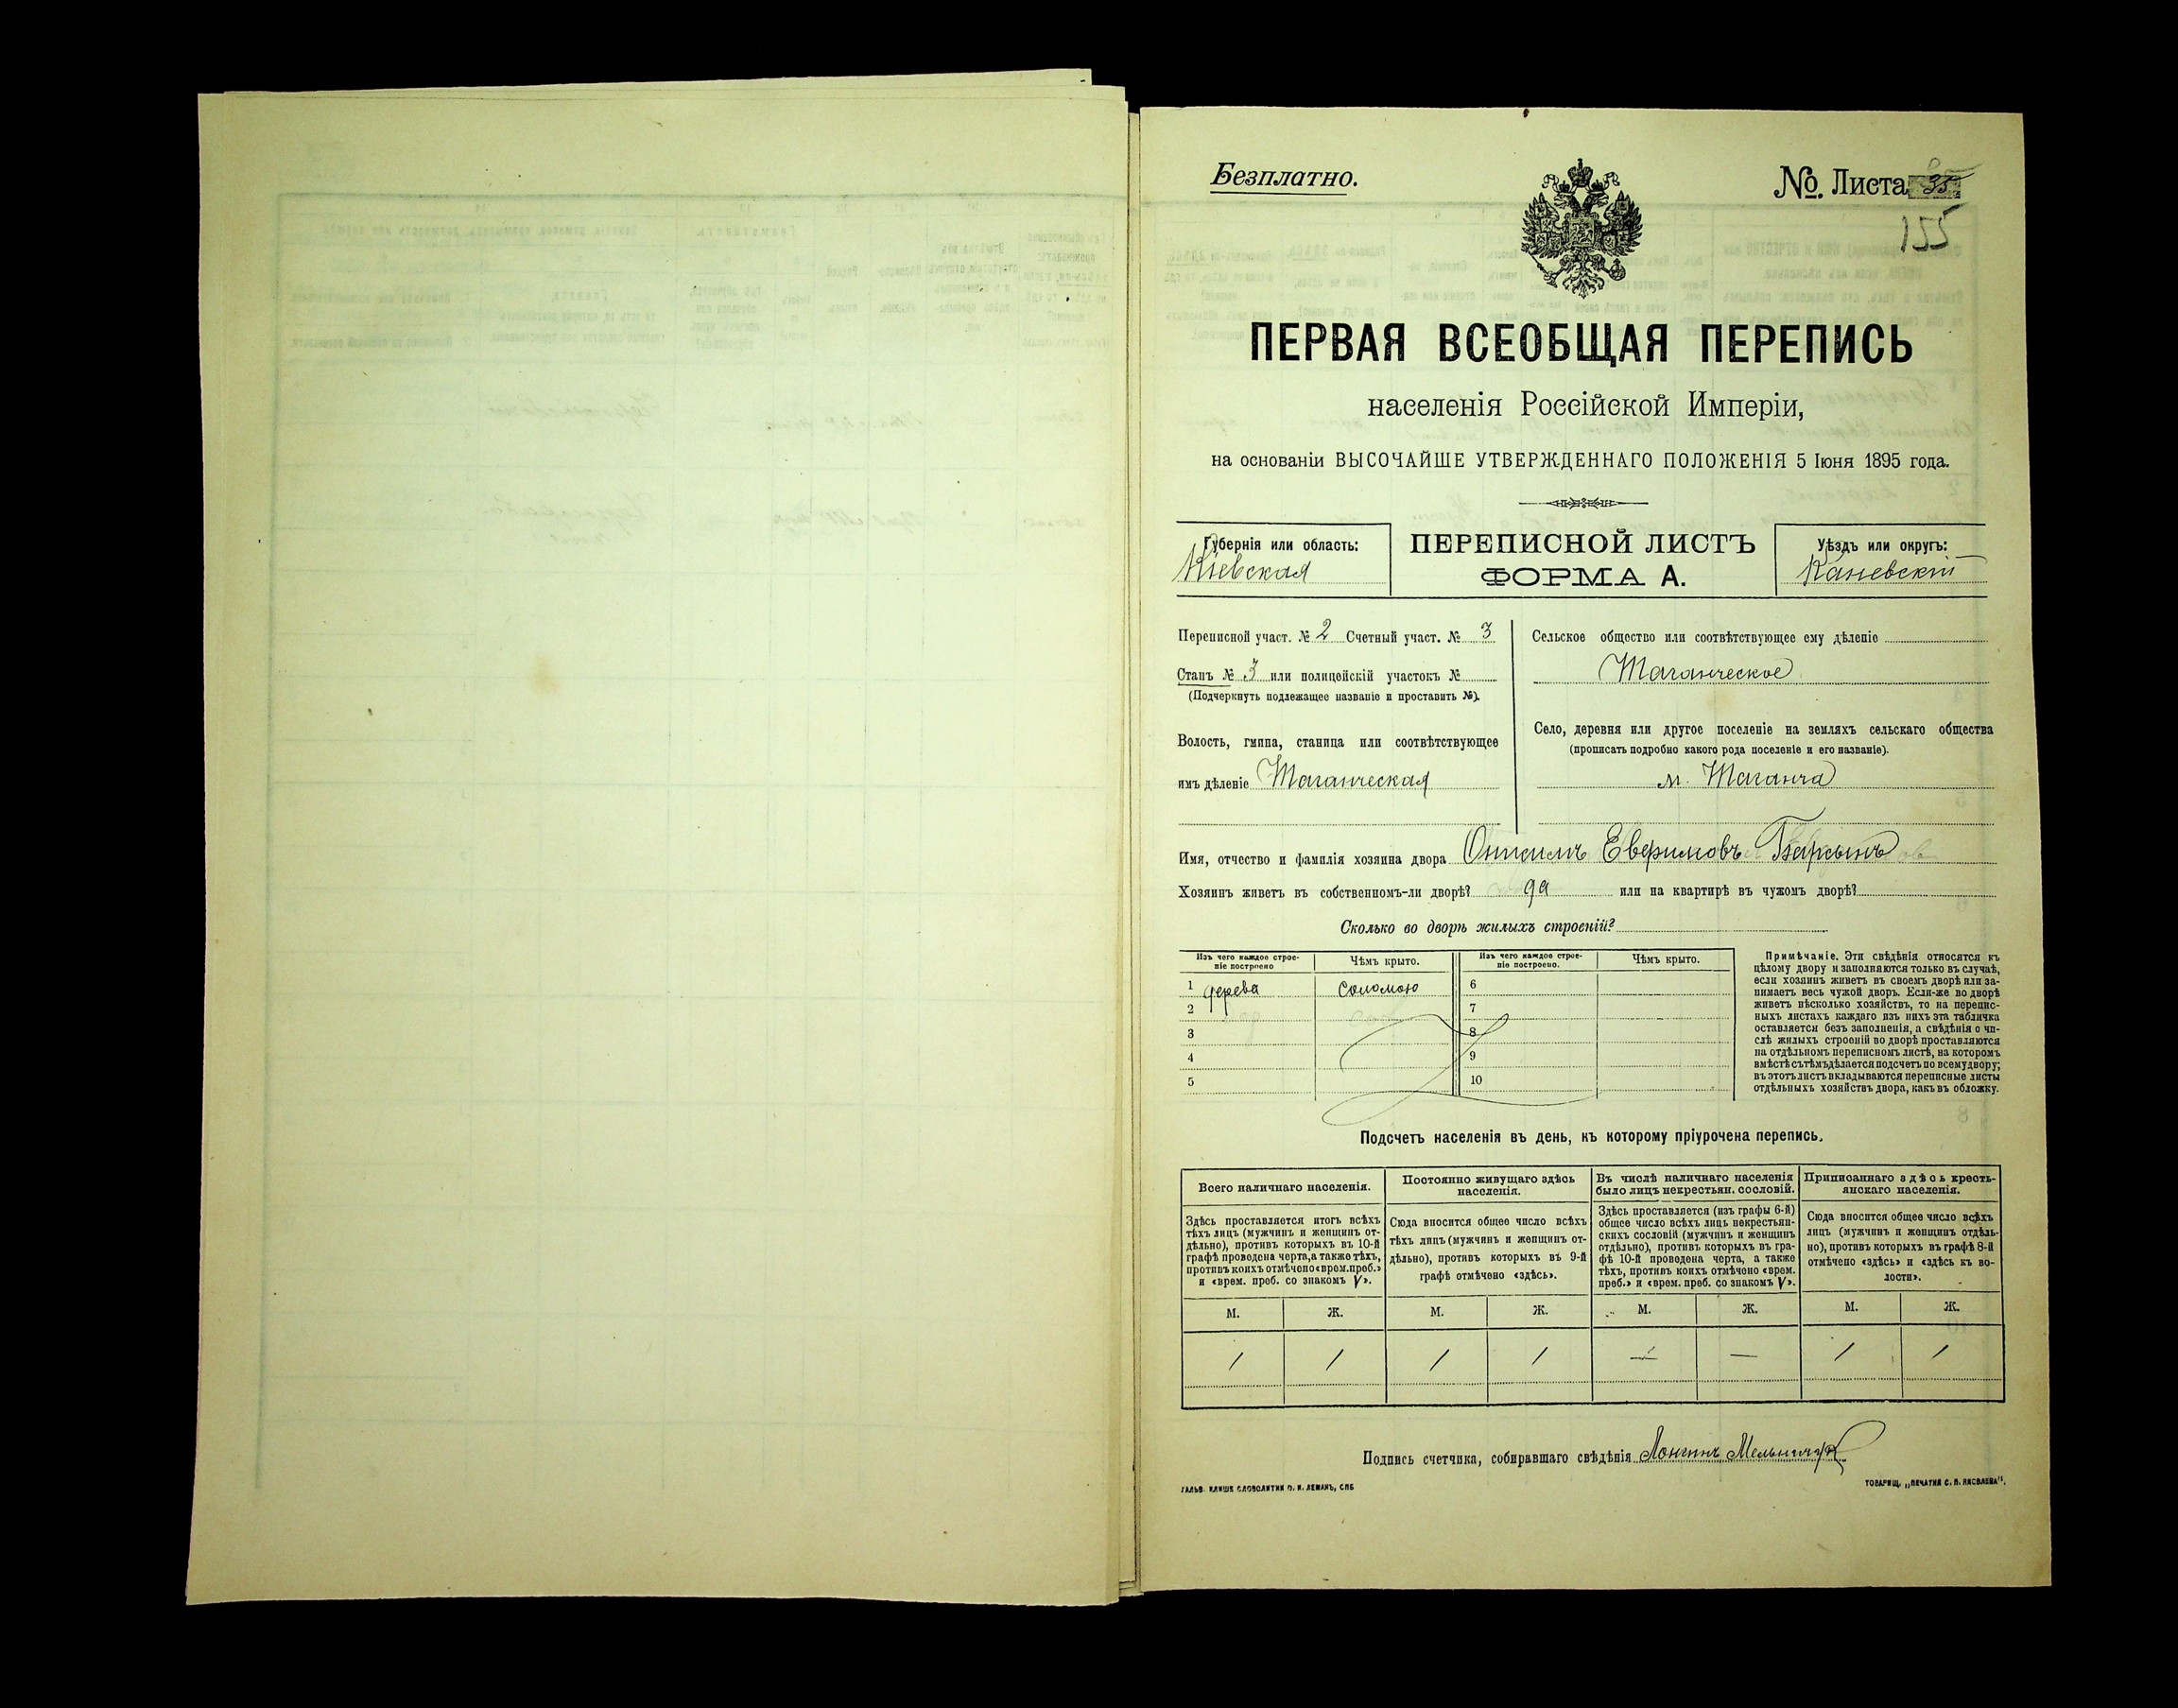 Безплатно.
№. Листа 35
155
ПЕРВАЯ ВСЕОБЩАЯ ПЕРЕПИСЬ
населенія Россійской Имперіи,
на основаніи ВЫСОЧАЙШЕ УТВЕРЖДЕННАГО ПОЛОЖЕНІЯ 5 Іюня 1895 года.
Губернія или область:
Кіевская
ПЕРЕПИСНОЙ ЛИСТЪ
ФОРМА А.
Уѣздъ или округъ:
Каневскій
Переписной участ. № 2 Счетный участ. № 3
Станъ № 3 или полицейскій участокъ №
(Подчеркнуть подлежащее названіе и проставить №).
Волость, гмина, станица или соотвѣтствующее
имъ дѣленіе Таганческая
Сельское общество или соотвѣтствующее ему дѣленіе
Таганческое
Село, деревня или другое поселеніе на земляхъ сельскаго общества
(прописать подробно какого рода поселеніе и его названіе).
м. Таганча
Имя, отчество и фамилія хозяина двора
Хозяинъ живетъ въ собственномъ-ли дворѣ? да или на квартирѣ въ чужомъ дворѣ?
Сколько во дворѣ жилыхъ строеній?
Изъ чего каждое строе-
ніе построено
Чѣмъ крыто.
Изъ чего каждое строе-
ніе построено.
Чѣмъ крыто.
1 дерева соломою 6
2 7
3 8
4 9
5 10
Примѣчаніе. Эти свѣдѣнія относятся къ
цѣлому двору и заполняются только въ случаѣ,
если хозяинъ живетъ въ своемъ дворѣ или за-
нимаетъ весь чужой дворъ. Если-же во дворѣ
живетъ нѣсколько хозяйствъ, то на перепис-
ныхъ листахъ каждаго изъ нихъ эта табличка
оставляется безъ заполненія, а свѣдѣнія о чи-
слѣ жилыхъ строеній во дворѣ проставляются
на отдѣльномъ переписномъ листѣ, на которомъ
вмѣстѣ съ тѣмъ дѣлается подсчетъ по всему двору;
въ этотъ листъ вкладываются переписные листы
отдѣльныхъ хозяйствъ двора, какъ въ обложку.
Подсчетъ населенія въ день, къ которому пріурочена перепись.
Всего наличнаго населенія.
Постоянно живущаго здѣсь
населенія.
Въ числѣ наличнаго населенія
было лицъ некрестьян. сословій.
Приписаннаго здѣсь кресть-
янскаго населенія.
Здѣсь проставляется итогъ всѣхъ
тѣхъ лицъ (мужчинъ и женщинъ от-
дѣльно), противъ которыхъ въ 10-й
графѣ проведена черта, а также тѣхъ,
противъ коихъ отмѣчено «врем. преб.»
и «врем. преб. со знакомъ V».
Сюда вносится общее число всѣхъ
тѣхъ лицъ (мужчинъ и женщинъ от-
дѣльно), противъ которыхъ въ 9-й
графѣ отмѣчено «здѣсь».
Здѣсь проставляется (изъ графы 6-й)
общее число всѣхъ лицъ некрестьян-
скихъ сословій (мужчинъ и женщинъ
отдѣльно), противъ которыхъ въ гра-
фѣ 10-й проведена черта, а также
тѣхъ, противъ коихъ отмѣчено «врем.
преб.» и «врем. преб. со знакомъ V».
Сюда вносится общее число всѣхъ
лицъ (мужчинъ и женщинъ отдѣль-
но), противъ которыхъ въ графѣ 8-й
отмѣчено «здѣсь» и «здѣсь къ во-
лости».
М. Ж. М. Ж. М. Ж. М. Ж.
1 1 1 1 — — 1 1
Подпись счетчика, собиравшаго свѣдѣнія Лонгинъ Мельничук
ГАЛЬВ. КЛИШЕ СЛОВОЛИТНИ О. И. ЛЕМАНЪ, СПБ
ТОВАРИЩ. „ПЕЧАТНЯ С. П. ЯКОВЛЕВА".